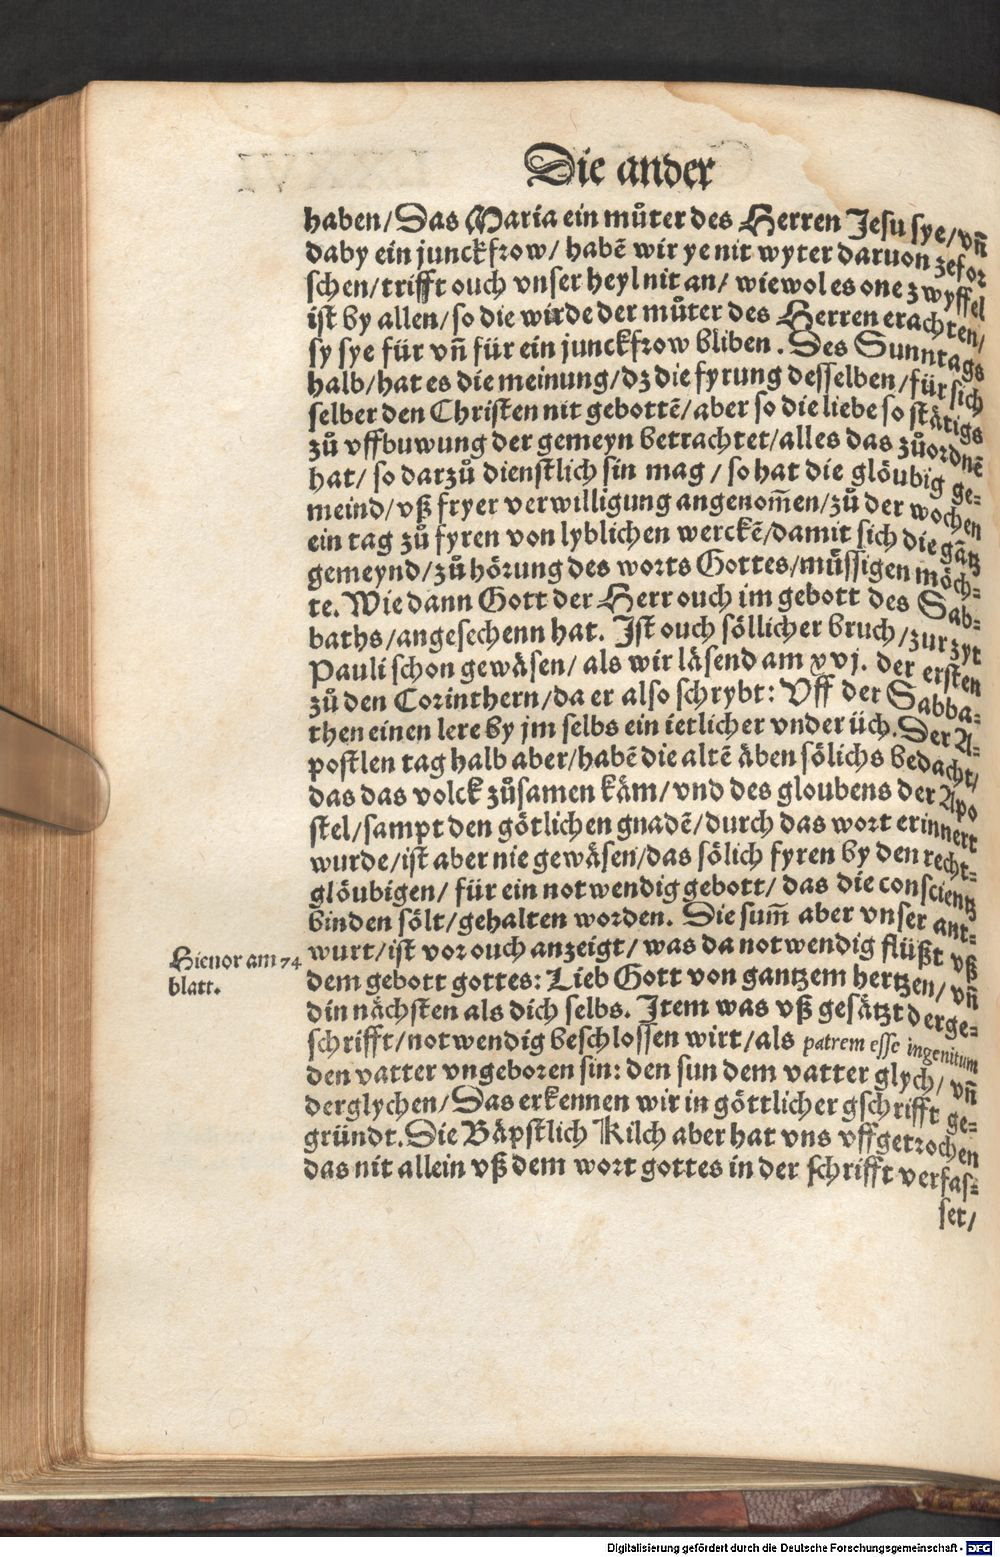 Die ander
haben/ Das Maria ein můter des Herren Jesu sye/ vñ
daby ein junckfrow/ habē wir ye nit wyter daruon zefor
schen/ trifft ouch vnser heyl nit an/ wiewol es one zwyffel
ist by allen/ so die wirde der můter des Herren erachten/
sy sye für vñ für ein junckfrow bliben. Des Sunntags
halb/ hat es die meinung/ dz die fyrung desselben/ für sich
selber den Christen nit gebottē/ aber so die liebe so stätigs
zů vffbuwung der gemeyn betrachtet/ alles das zůordnē
hat/ so darzů dienstlich sin mag/ so hat die glöubig ge-
meind/ vß fryer verwilligung angenom̄en/ zů der wochen
ein tag zů fyren von lyblichen werckē/ damit sich die gātz
gemeynd/ zů hörung des worts Gottes/ müssigen möch-
te. Wie dann Gott der Herr ouch im gebott des Sab-
baths/ angesechenn hat. Ist ouch söllicher bruch/ zur zyt
Pauli schon gewäsen/ als wir läsend am xvj. der ersten
zů den Corinthern/ da er also schrybt: Vff der Sabba-
then einen lere by jm selbs ein ietlicher vnder üch. Der A-
postlen tag halb aber/ habē die altē äben sölichs bedacht/
das das volck zůsamen käm/ vnd des gloubens der Apo
stel/ sampt den götlichen gnadē/ durch das wort erinnert
wurde/ ist aber nie gewäsen/ das sölich fyren by den recht-
glöubigen/ für ein notwendig gebott/ das die conscientz
binden sölt/ gehalten worden. Die sum̄ aber vnser ant-
wurt/ ist vor ouch anzeigt/ was da notwendig flüßt vß
Hieuor am 74
blatt.
dem gebott gottes: Lieb Gott von gantzem hertzen/ vñ
din nächsten als dich selbs. Item was vß gesätzt derge-
schrifft/ notwendig beschlossen wirt/ als patrem esse ingenitum
den vatter vngeboren sin: den sun dem vatter glych/ vñ
derglychen/ Das erkennen wir in göttlicher gschrifft ge-
gründt. Die Bäpstlich Kilch aber hat vns vffgetrochen
das nit allein vß dem wort gottes in der schrifft verfas-
set/
Digitalisierung gefördert durch die Deutsche Forschungsgemeinschaft - DFG